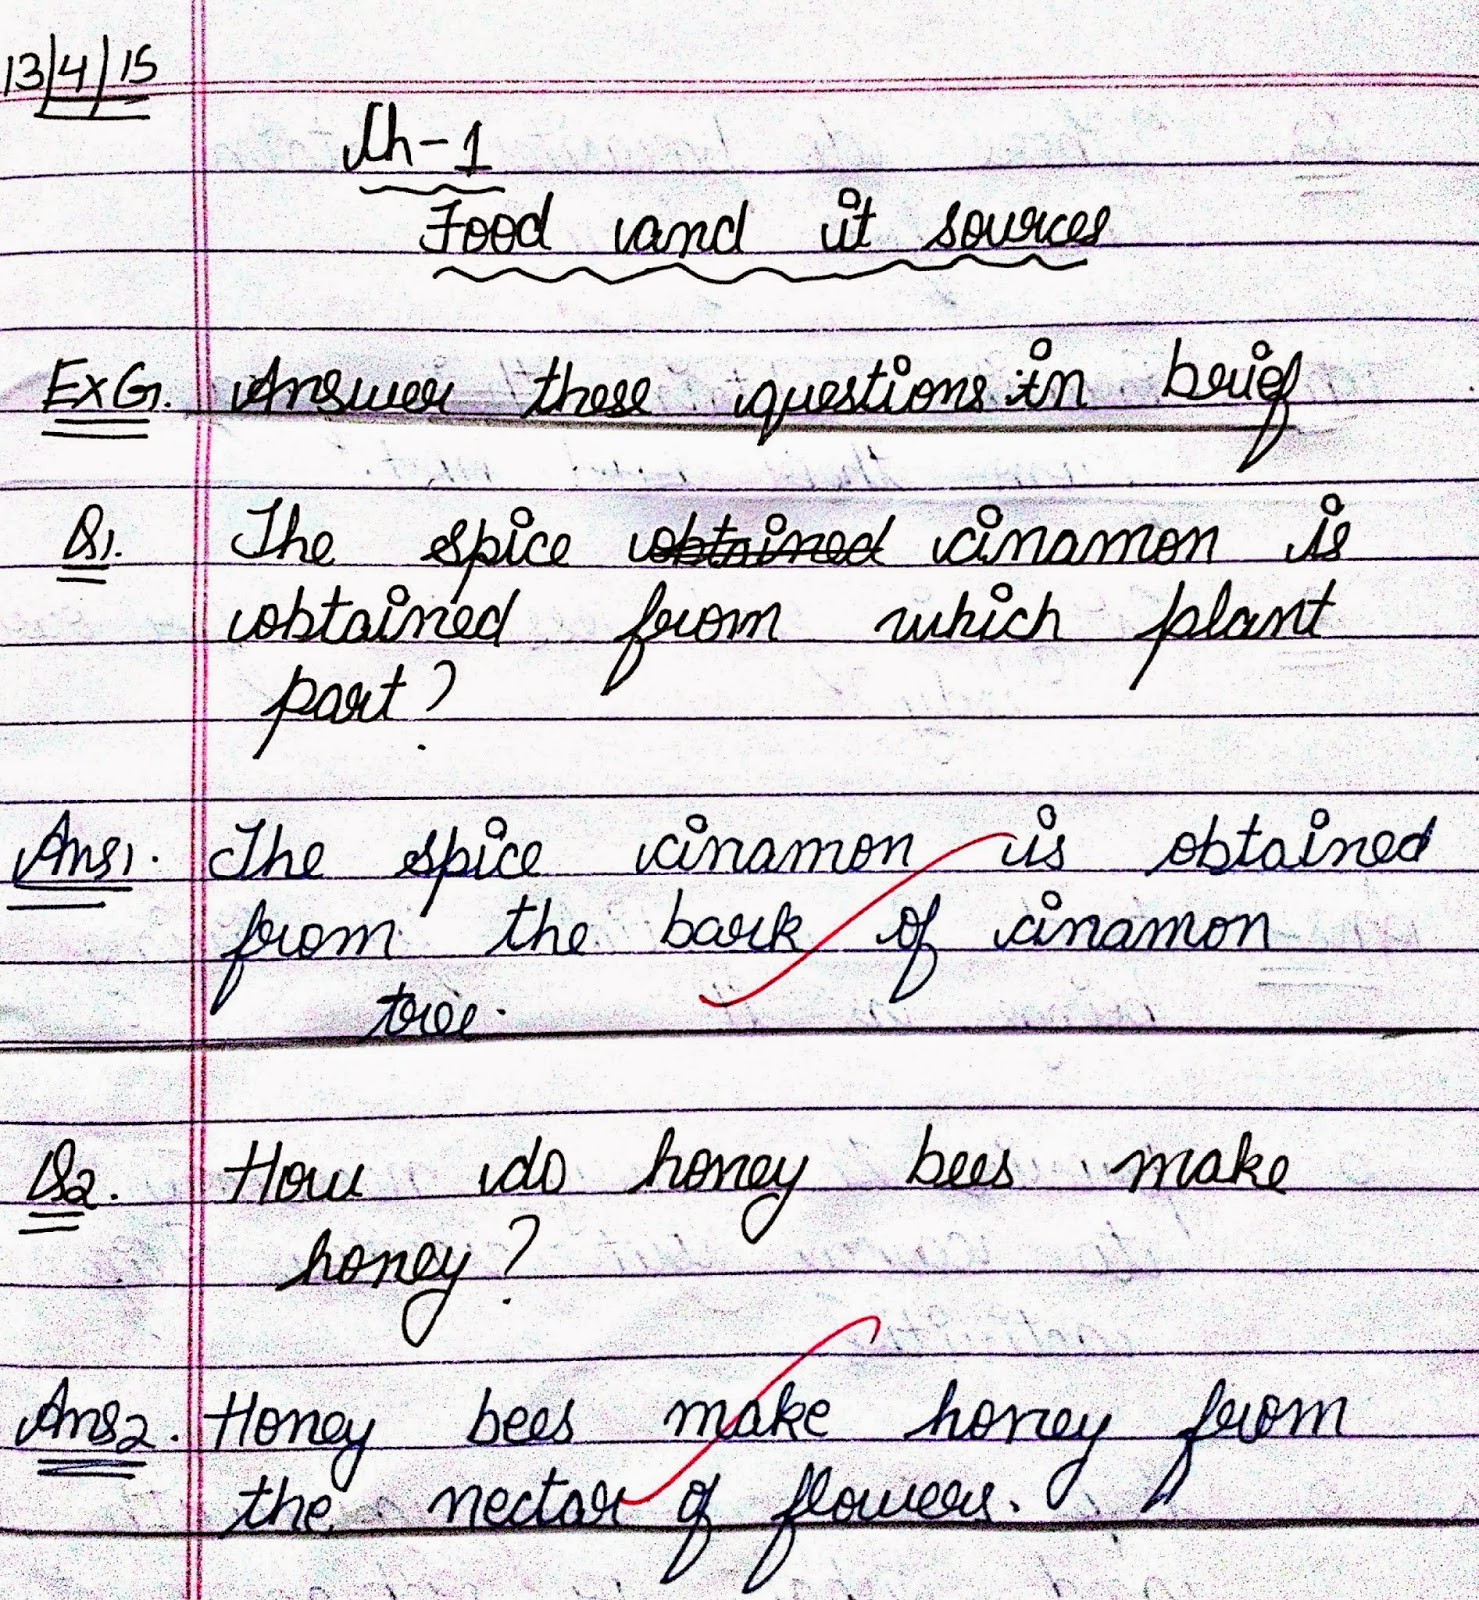 13/4/15
Ch-1
Food and it sources
Ex G. Answer these questions in brief
Q1. The spice obtained cinamon is
obtained from which plant
part?
Ans1. The spice cinamon is obtained
from the bark of cinamon
tree.
Q2. How do honey bees make
honey?
Ans2. Honey bees make honey from
the nectar of flowers.